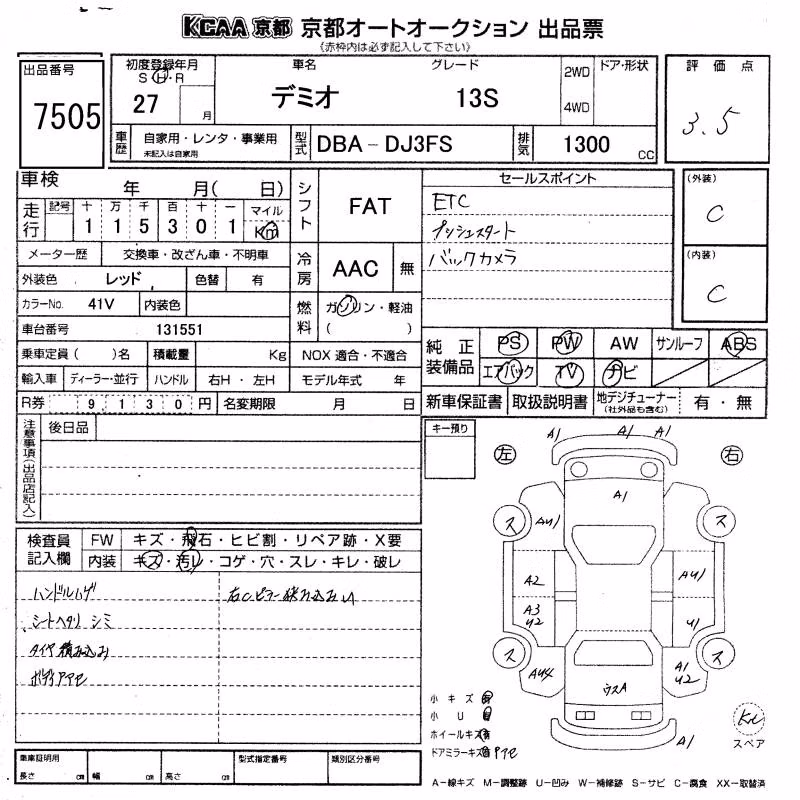 KCAA 京都 京都オートオークション 出品票
《赤枠内は必ず記入して下さい》
出品番号
7505
初度登録年月
S・H・R
27 月
車名
デミオ
グレード
13S
2WD
4WD
ドア・形状
評価点
3.5
車歴
自家用・レンタ・事業用
未記入は自家用
型式
DBA-DJ3FS
排気
1300 CC
車検 年 月( 日)
走行 記号 十 万 千 百 十 一 マイル
1 1 5 3 0 1 Km
メーター歴 交換車・改ざん車・不明車
外装色 レッド 色替 有
カラーNo. 41V 内装色
車台番号 131551
乗車定員( )名 積載量 Kg
輸入車 ディーラー・並行 ハンドル 右H・左H
R券 9,130円 名変期限 月 日
シフト FAT
冷房 AAC 無
燃料 ガソリン・軽油
( )
NOX 適合・不適合
モデル年式 年
セールスポイント
ETC
プッシュスタート
バックカメラ
(外装)
C
(内装)
C
純正装備品
PS PW AW サンルーフ ABS
エアバック TV ナビ
新車保証書 取扱説明書 地デジチューナー(社外品も含む) 有・無
注意事項(出品店記入)
後日品
キー預り
検査員記入欄
FW キズ・飛石・ヒビ割・リペア跡・X要
内装 キズ・汚レ・コゲ・穴・スレ・キレ・破レ
ハンドルハゲ
シートヘタリ シミ
タイヤ積み込み
ボディアアセ
右Cピラー
左 右
A1 A1 A1
A1
ス ス
AU1
A2 AU1
A3
U2 U1
ス ス
AU4
A1
U2
ウスA
A1
小キズ有
小U有
ホイールキズ有
ドアミラーキズ有
スペア
乗車証明用
長さ cm 幅 cm 高さ cm
型式指定番号
類別区分番号
A-線キズ M-調整跡 U-凹み W-補修跡 S-サビ C-腐食 XX-取替済